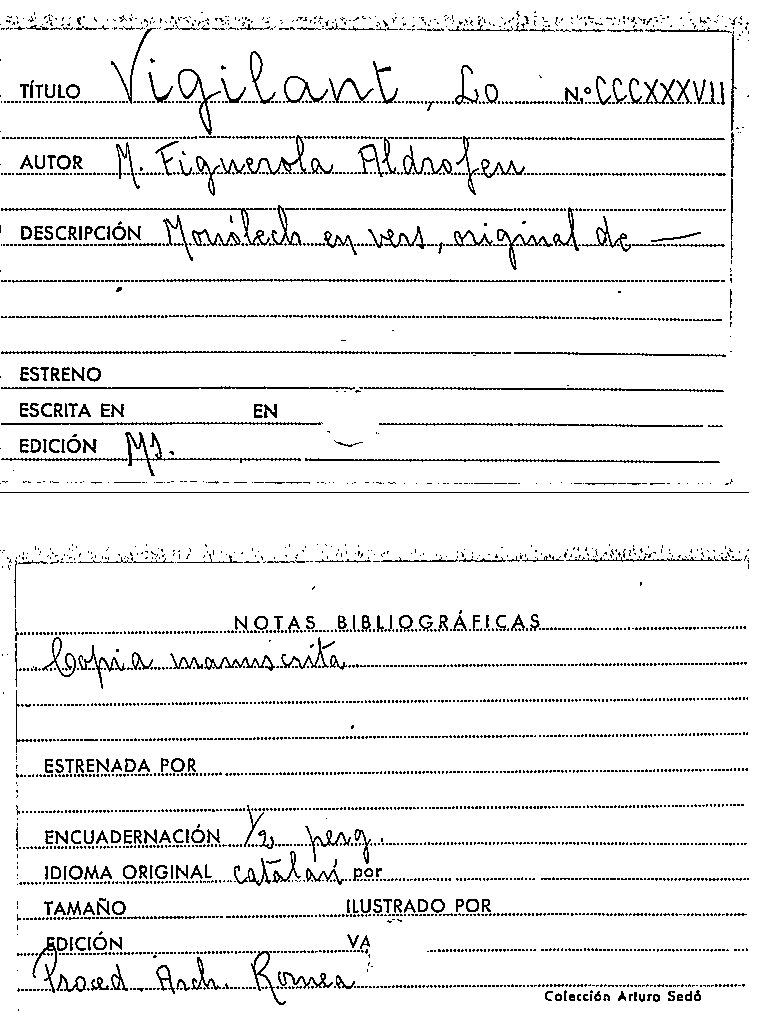 TÍTULO Vigilant, Lo N.º CCCXXXVII
AUTOR M. Figuerola Aldrofeu
DESCRIPCIÓN Monólech en vers, original de —
ESTRENO
ESCRITA EN EN
EDICIÓN Ms.
NOTAS BIBLIOGRÁFICAS
Copia manuscrita
ESTRENADA POR
ENCUADERNACIÓN 1/2 perg.
IDIOMA ORIGINAL catalán por
TAMAÑO ILUSTRADO POR
EDICIÓN VA
Proced. Arch. Romea
Colección Arturo Sedó